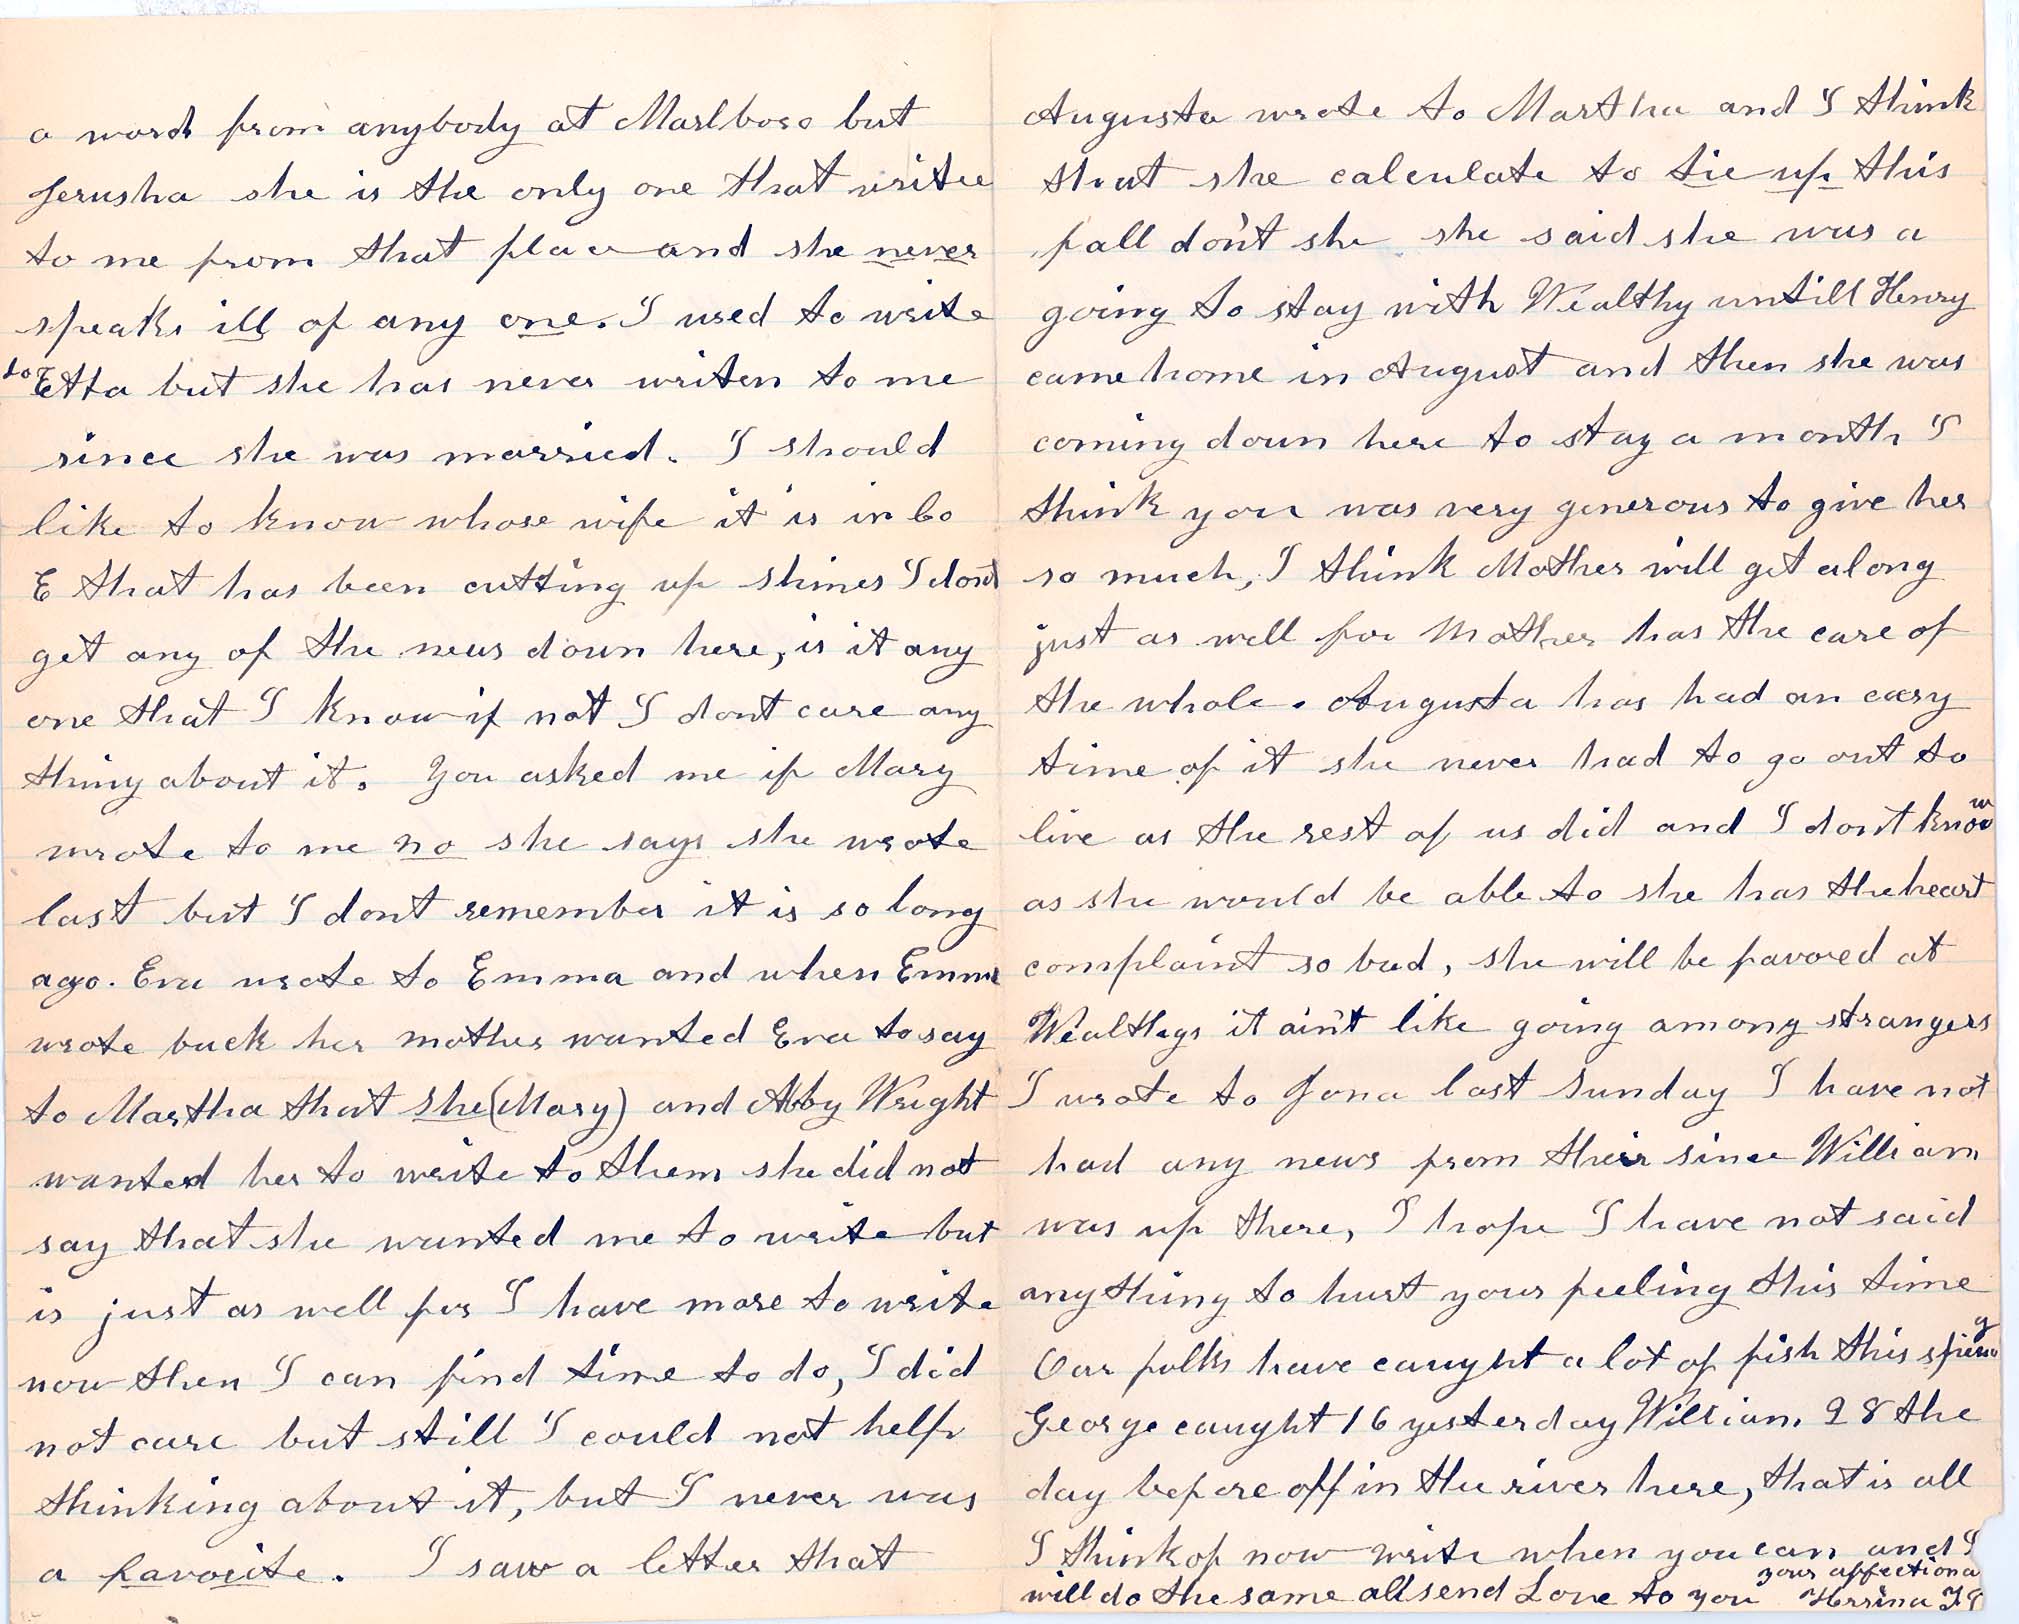 a word from anybody at Marlboro but
Jerusha she is the only one that write
to me from that place and she never
speaks ill of any one. I used to write
to Etta but she has never writen to me
since she was married. I should
like to know whose wife it is in Co
E that has been cutting up shines I dont
get any of the news down here, is it any
one that I know if not I dont care any
thing about it. You asked me if Mary
wrote to me no she says she wrote
last but I dont remember it is so long
ago. Eva wrote to Emma and when Emma
wrote back her mother wanted Eva to say
to Martha that she (Mary) and Abby Wright
wanted her to write to them she did not
say that she wanted me to write but
is just as well for I have more to write
now then I can find time to do, I did
not care but still I could not help
thinking about it, but I never was
a favorite. I saw a letter that
Augusta wrote to Martha and I think
that she calculate to tie up this
fall don't she she said she was a
going to stay with Wealthy untill Henry
came home in August and then she was
coming down here to stay a month I
think you was very generous to give her
so much, I think Mother will get along
just as well for Mother has the care of
the whole. Augusta has had an easy
time of it she never had to go out to
live as the rest of us did and I don't know
as she would be able to she has the heart
complaint so bad, she will be favored at
Wealthys it ain't like going among strangers
I wrote to Jona last Sunday I have not
had any news from their since William
was up there, I hope I have not said
anything to hurt your feeling this time
Our folks have caught a lot of fish this
George caught 16 yesterday William 28 the
day before off in the river here, that is all
I think of now write when you can and I
will do the same all send Love to you your affectiona